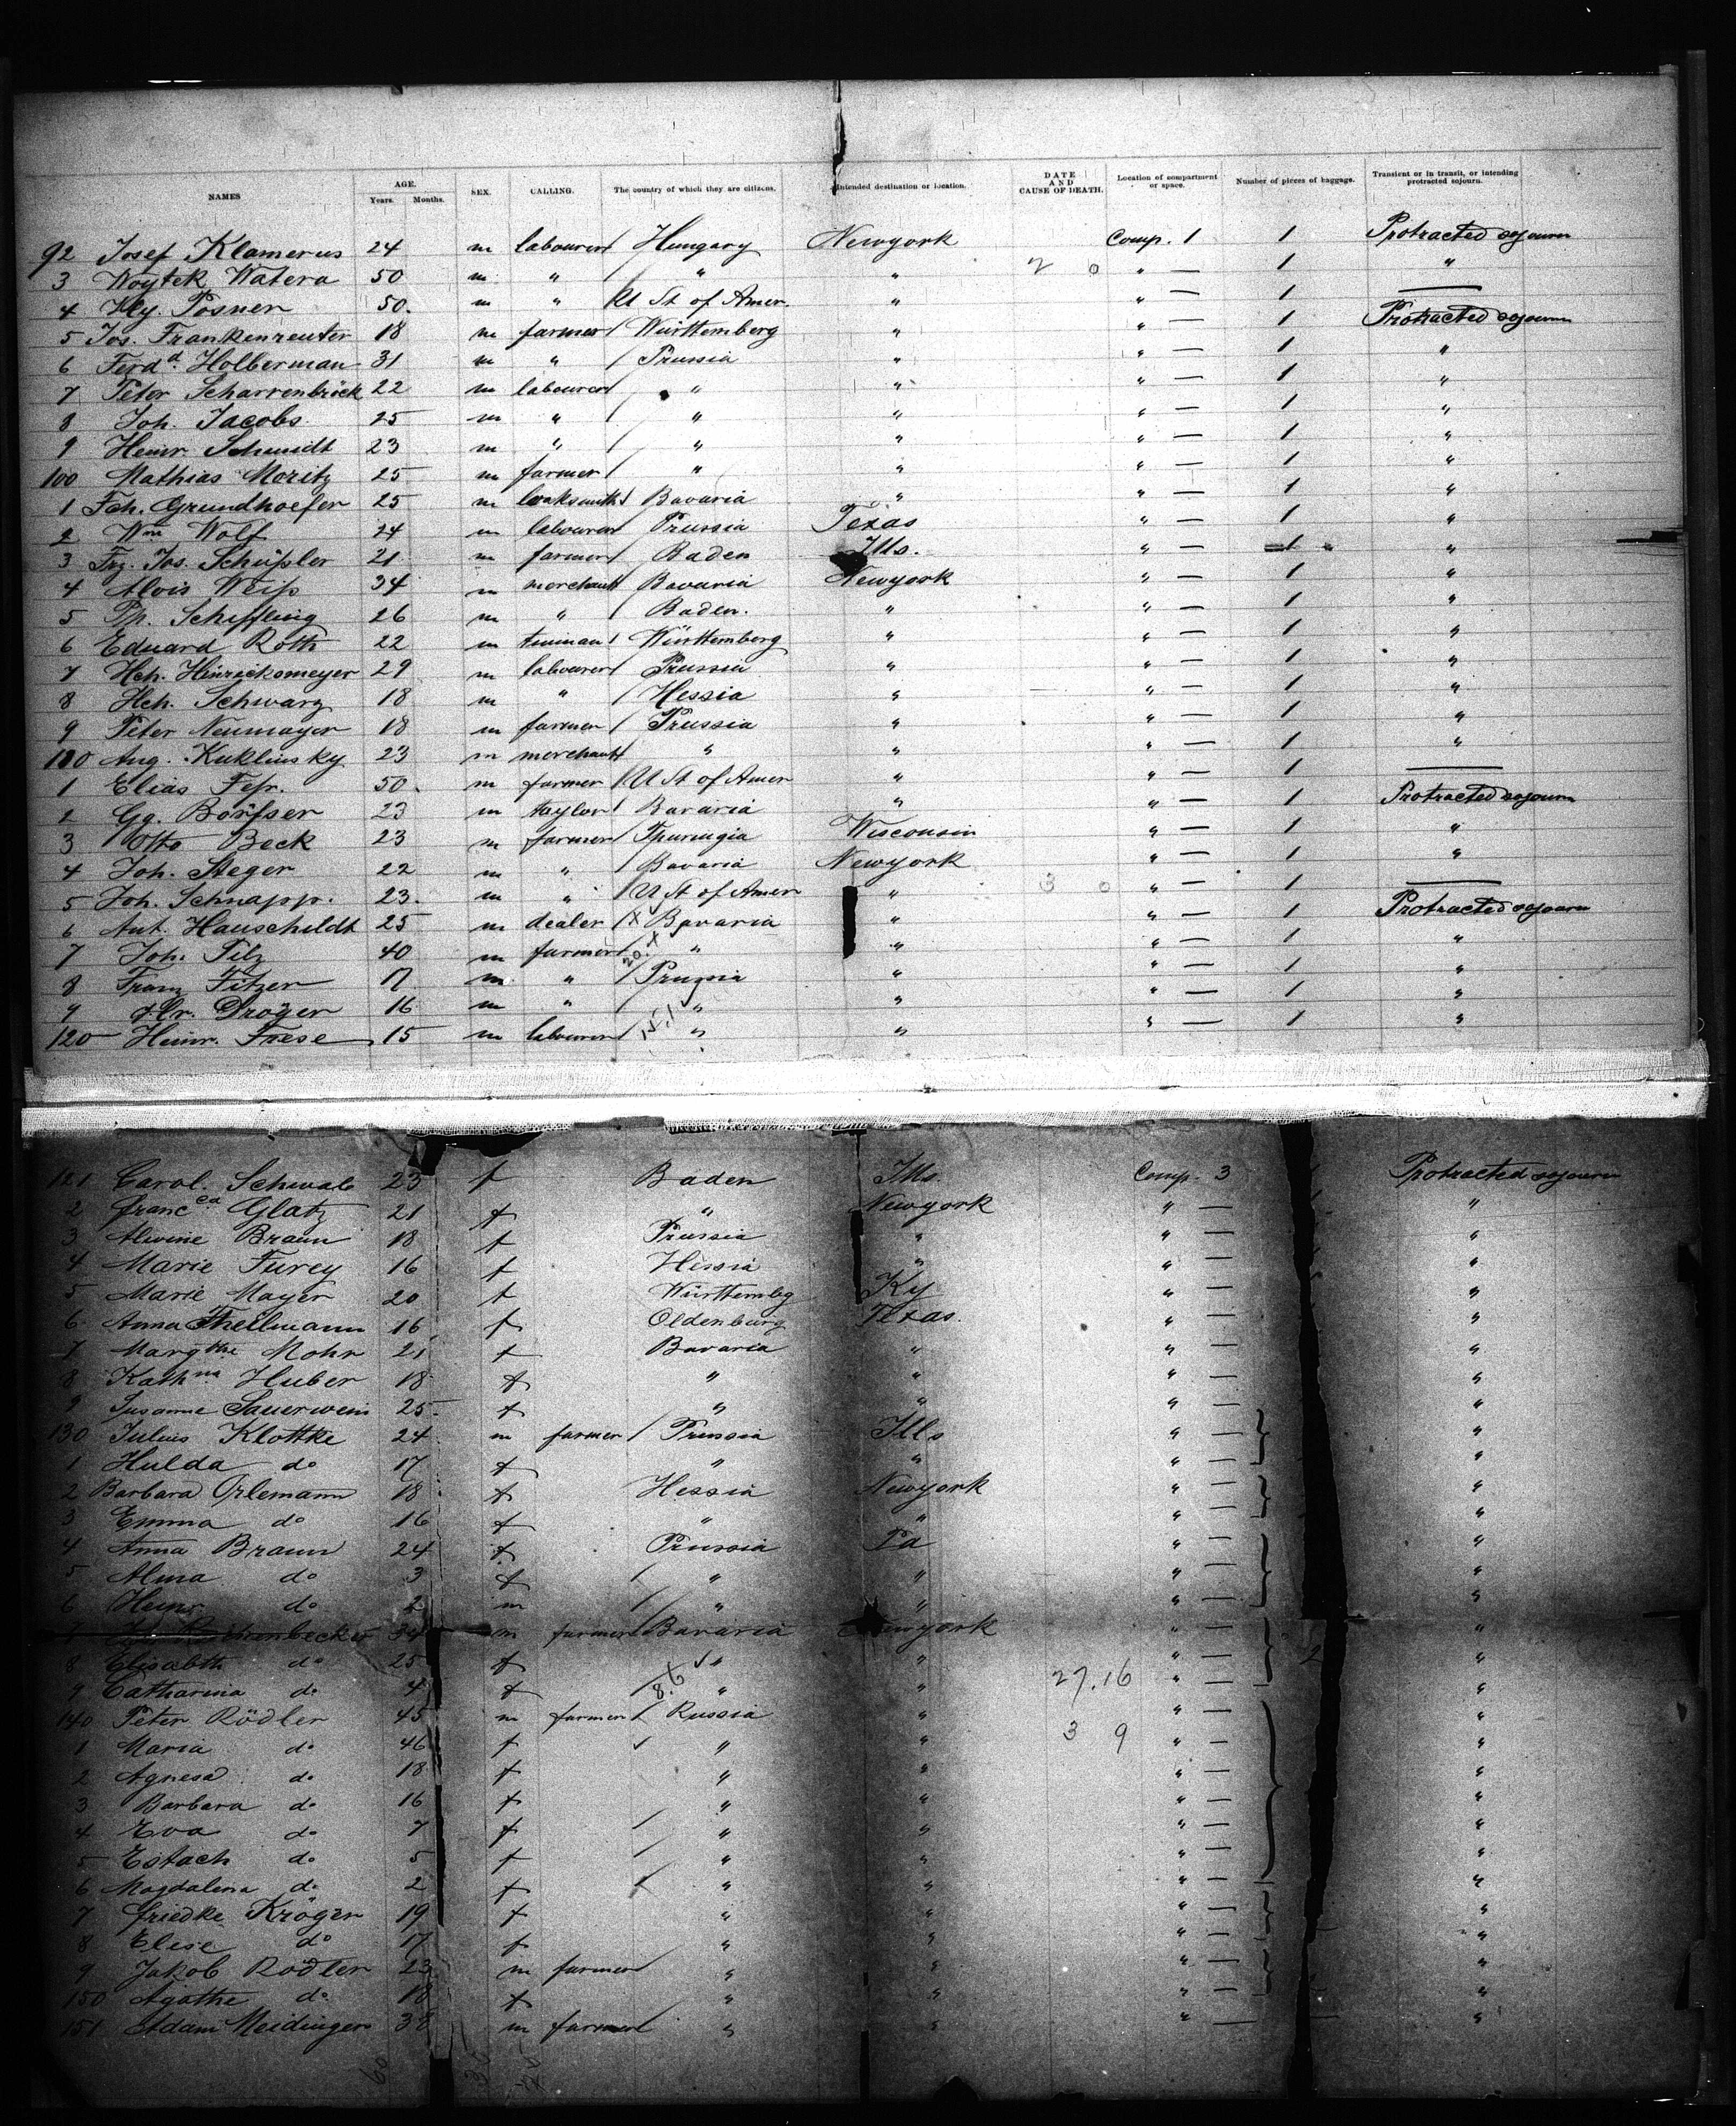 NAMES AGE. Years. Months. SEX. CALLING. The country of which they are citizens. Intended destination or location. DATE AND CAUSE OF DEATH. Location of compartment or space. Number of pieces of baggage. Transient or in transit, or intending protracted sojourn.
92 Josef Klamerus 24 m labourer / Hungary Newyork Comp. 1 1 Protracted sojourn
3 Woytek Watera 50 m " / " " 2 0 " — 1 "
4 Hy. Posner 50. m " / U St of Amer. " " — 1 —
5 Jos. Frankenreuter 18 m farmer / Württemberg " " — 1 Protracted sojourn
6 Ferd.d Holberman 31 m " / Prussia " " — 1 "
7 Peter Scharrenbröck 22 m labourer / " " " — 1 "
8 Joh. Jacobs 25 m " / " " " — 1 "
9 Heinr. Schmidt 23 m " / " " " — 1 "
100 Mathias Moritz 25 m farmer / " " " — 1 "
1 Fch. Grundhoefer 25 m locksmith / Bavaria " " — 1 "
2 Wm Wolf 24 m labourer / Prussia Texas " — 1 "
3 Frz. Jos. Schüßler 21 m farmer / Baden Ills. " — 1 "
4 Alois Weiß 34 m merchant / Bavaria Newyork " — 1 "
5 Ph. Schiffling 26 m " / Baden. " " — 1 "
6 Eduard Roth 22 m / Württemberg " " — 1 "
7 Hch. Hinricksmeyer 29 m labourer / Prussia " " — 1 "
8 Hch. Schwarz 18 m " / Hessia " " — 1 "
9 Peter Neumayer 18 m farmer / Prussia " " — 1 "
110 Aug. Kuklinsky 23 m merchant / " " " — 1 "
1 Elias Feßr. 50. m farmer / U St of Amer " " — 1 —
2 Gg. Börfser 23 m taylor / Bavaria " " — 1 Protracted sojourn
3 Otto Beck 23 m farmer / Thuringia Wisconsin " — 1 "
4 Joh. Steger 22 m " / Bavaria Newyork " — 1 "
5 Joh. Schnapp. 23. m " / U St of Amer " 3 0 " — 1 —
6 Ant. Hauschildt 25 m dealer / x Bavaria " " — 1 Protracted sojourn
7 Joh. Pilz 40 m farmer / 20. x " " " — 1 "
8 Franz Fitzer 17 m " / Prussia " " — 1 "
9 Hr. Dröger 16 m " / " " " — 1 "
120 Heinr. Frese 15 m labourer / 15.1 " " " — 1 "
121 Carol. Schwab 23 f Baden Ills. Comp. 3 Protracted sojourn
2 Franc.ca Glatz 21 f " Newyork " — "
3 Alwine Braun 18 f Prussia " " — "
4 Marie Furey 16 f Hessia " " — "
5 Marie Mayer 20 f Württembg Ky " — "
6 Anna Theilmann 16 f Oldenburg Texas. " — "
7 Margthe Mohr 21 f Bavaria " " — "
8 Kathna Huber 18 f " " " — "
9 Susanne Sauerwein 25 f " " " — "
130 Julius Klottke 24 m farmer / Prussia Ills " — "
1 Hulda do 17 f " " " — "
2 Barbara Orlemann 18 f Hessia Newyork " — "
3 Emma do 16 f " " " — "
4 Anna Braun 24 f Prussia Pa " — "
5 Alma do 3 f / " " " — "
6 Heinr do 2 m / " " " — "
7 34 m farmer / Bavaria Newyork " — "
8 Elisabth do 25 f " " " — 2 "
9 Catharina do 4 f / 8.6 " " 27.16 " — "
140 Peter Rödler 45 m farmer / Russia " " — "
1 Maria do 46 f " " 3 9 " — "
2 Agnesa do 18 f " " " — "
3 Barbara do 16 f " " " — "
4 Eva do 7 f / " " " — "
5 Estach do 5 f / " " " — "
6 Magdalena do 2 f / " " " — "
7 Friedke Kröger 19 f " " " — "
8 Elise do 17 f " " " — "
9 Jakob Rödler 23 m farmer / " " " — "
150 Agathe do 18 f " " " — "
151 Adam Meidinger 38 m farmer / " " " — "